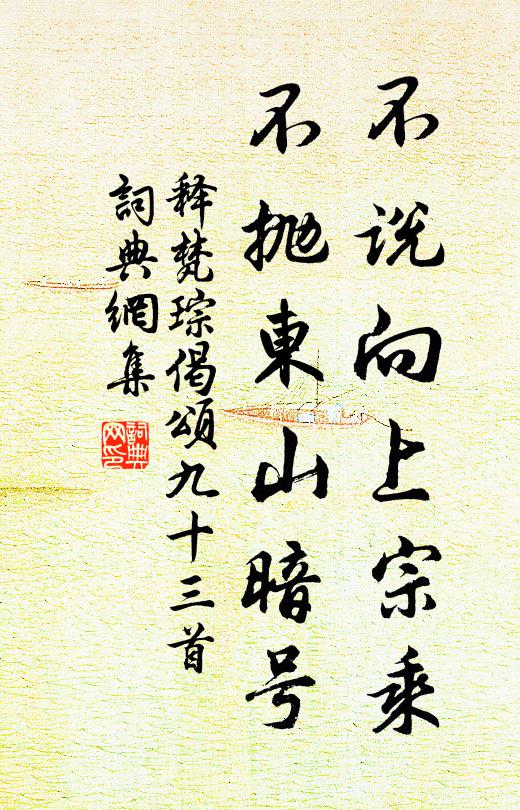 不说向上宗乘
不抛東山暗号
释梵琮偈頌九十三首
詞典網集
詞典
网印